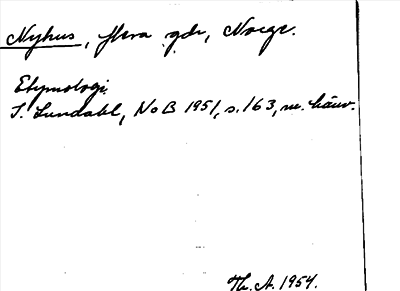 Nyhus, flera gdr, Norge.
Etymologi.
I. Lundahl, NoB 1951, s. 163, m. hänv.
Th. A. 1954.